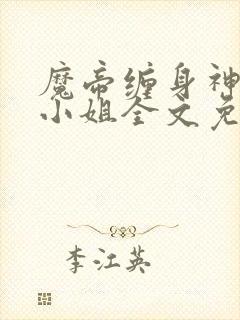 魔帝缠身神
小姐全文免
李江英